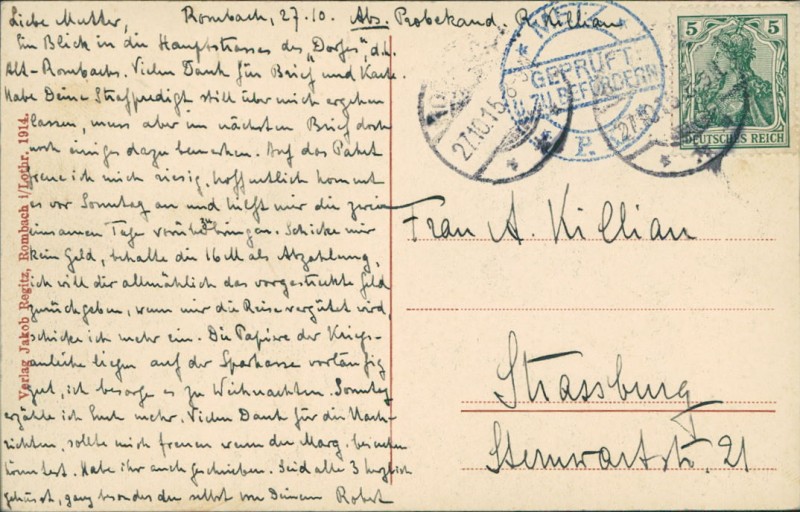 Liebe Mutter, Rombach, 27.10. Abs. Probekand. R. Killian
Ein Blick in die Hauptstrasse des "Dorfes", d.h.
Alt-Rombachs. Vielen Dank für Brief und Karte.
Habe Deine Strafpredigt still über mich ergehen
lassen, muss aber im nächsten Brief doch
noch einiges dazu bemerken. Auf das Paket
freue ich mich riesig, hoffentlich kommt
es vor Sonntag an und hilft mir die zwei
einsamen Tage vorüberbringen. Schicke mir
kein Geld, behalte die 16 M als Abzahlung,
ich will dir allmählich das vorgestreckte Geld
zurückgeben, wenn mir die Reise vergütet wird,
schicke ich mehr ein. Die Papiere der Kriegs-
anleihe liegen auf der Sparkasse vorläufig
gut, ich besorge es zu Weihnachten. Sonntag
erzähle ich Euch mehr. Vielen Dank für die Nach-
richten, sollte mich freuen wenn du Marg.
könntest. Habe ihr auch geschrieben. Seid alle 3 herzlich
geküsst, ganz besonders du selbst von Deinem Robert
Verlag Jakob Regitz, Rombach i/Lothr. 1914.
METZ
GEPRÜFT
U. ZU BEFÖRDERN
P.
27.10.15.
27.10.15.
5 5
DEUTSCHES REICH
Frau A. Killian
Strassburg
Sternwartstr. 21